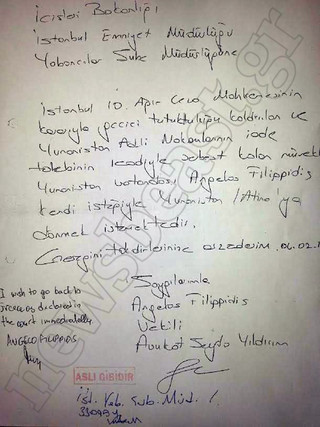 İçişleri Bakanlığı
İstanbul Emniyet Müdürlüğü
Yabancılar Şube Müdürlüğüne
İstanbul 10. Ağır Ceza Mahkemesinin
kararıyla geçici tutukluluğu kaldırılan ve
Yunanistan Adli Makamlarının iade
talebinin reddiyle serbest kalan müvekkil
Yunanistan vatandaşı Angelos Filippidis
kendi isteğiyle Yunanistan / Atina'ya
dönmek istemektedir.
Gereğini takdirlerinize arz ederim. 06.02.1
Saygılarımla
Angelos Filippidis
Vekili
Avukat Seyfo Yıldırım
I wish to go back to
Greece as declared in
the court immediately
ANGELOS FILIPPIDIS
ASLI GİBİDİR
newsbeast.gr